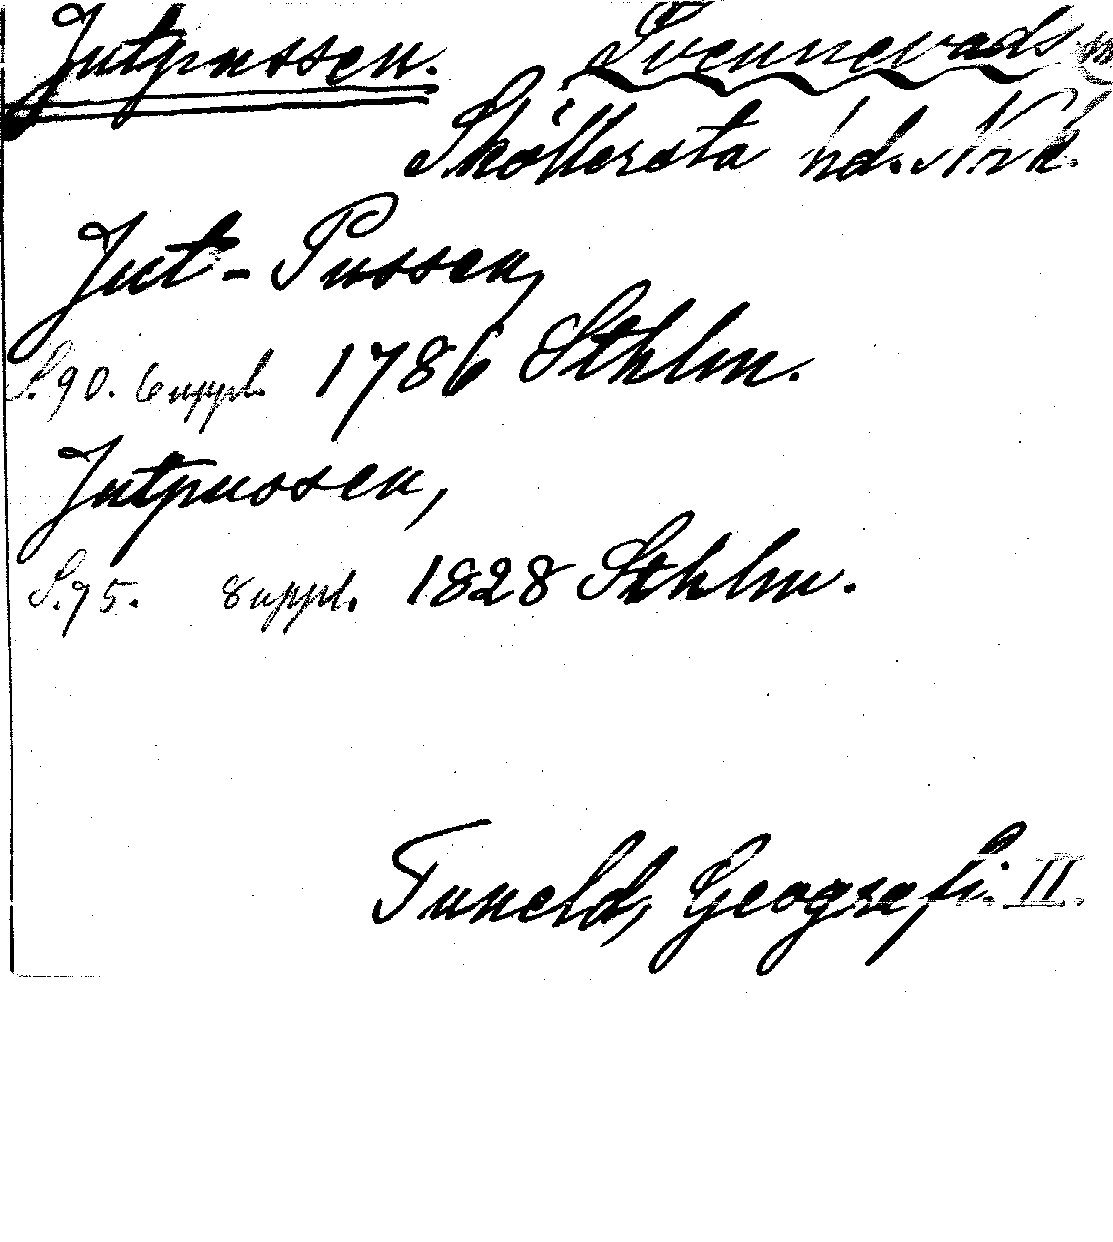 Jutpussen. Svennevads
Sköllersta hd. Nrk.
Jut-Pussen,
S. 90. 6 uppl. 1786 Sthlm.
Jutpussen,
S. 95. 8 uppl. 1828 Sthlm.
Tuneld, Geografi. II.